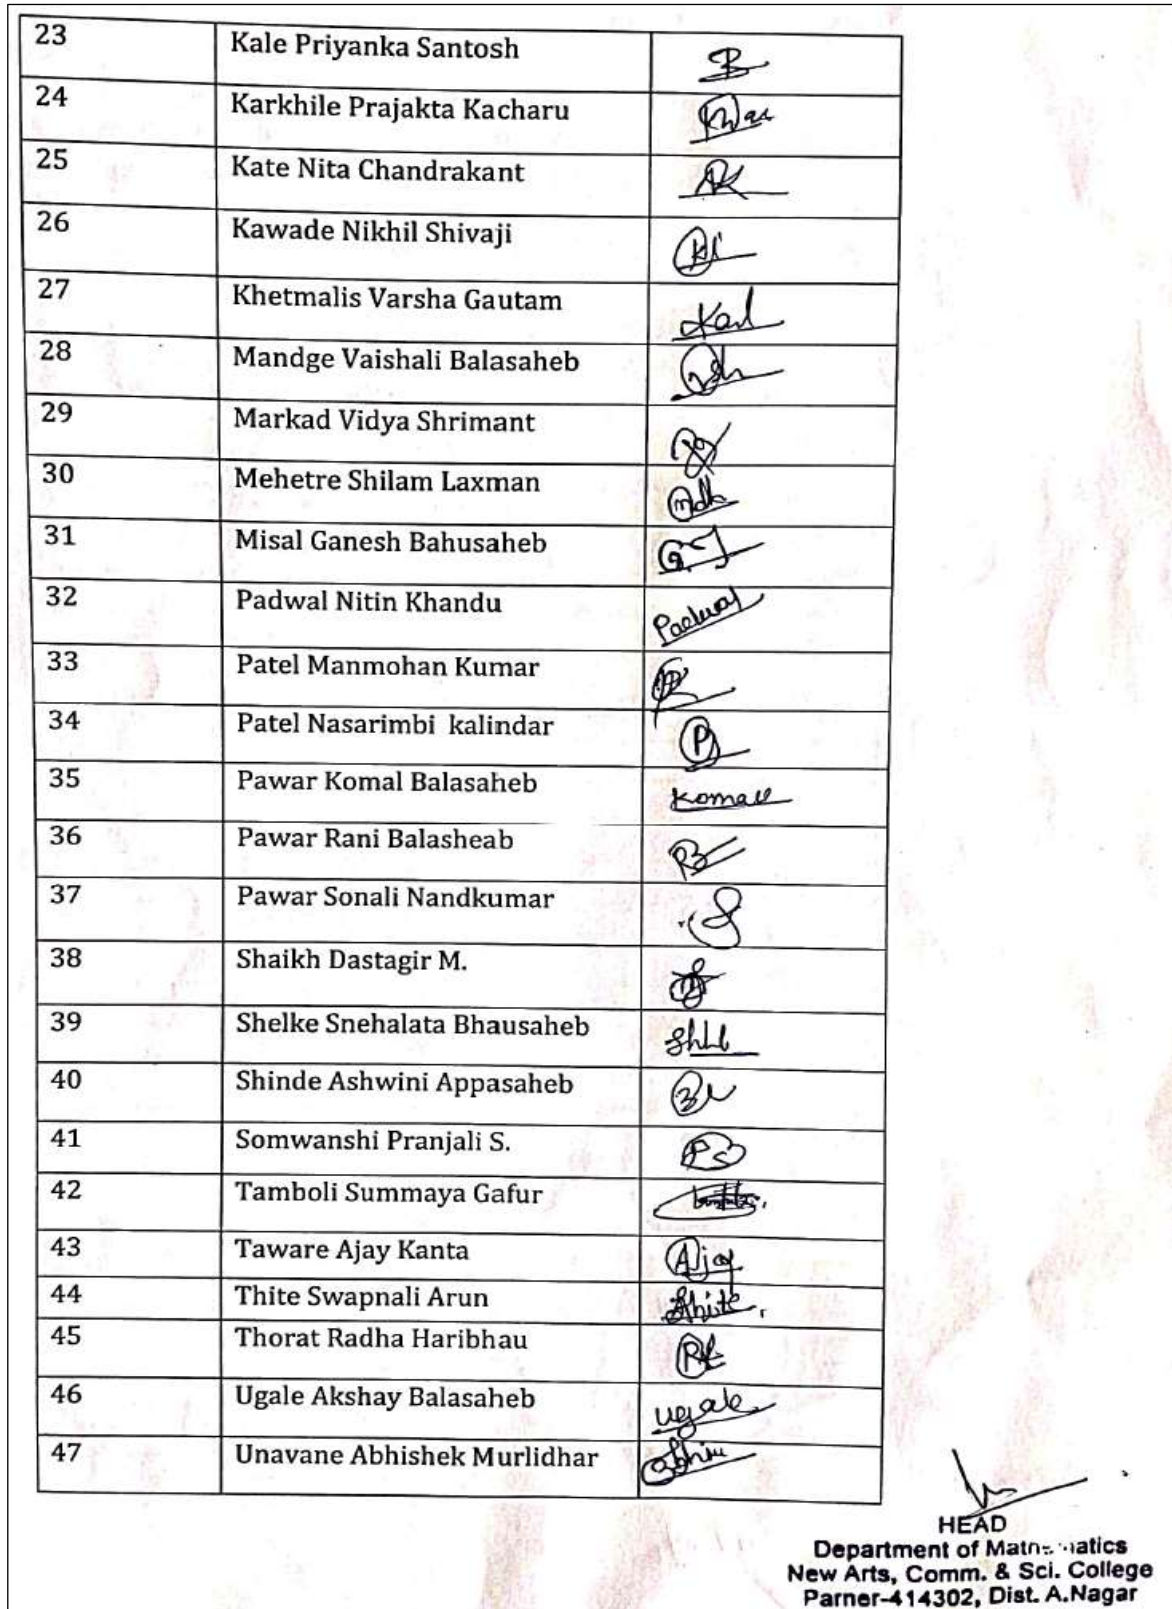 23 Kale Priyanka Santosh
24 Karkhile Prajakta Kacharu
25 Kate Nita Chandrakant
26 Kawade Nikhil Shivaji
27 Khetmalis Varsha Gautam
28 Mandge Vaishali Balasaheb
29 Markad Vidya Shrimant
30 Mehetre Shilam Laxman
31 Misal Ganesh Bahusaheb
32 Padwal Nitin Khandu Padwal
33 Patel Manmohan Kumar
34 Patel Nasarimbi kalindar P
35 Pawar Komal Balasaheb Komal
36 Pawar Rani Balasheab
37 Pawar Sonali Nandkumar
38 Shaikh Dastagir M.
39 Shelke Snehalata Bhausaheb
40 Shinde Ashwini Appasaheb
41 Somwanshi Pranjali S. PS
42 Tamboli Summaya Gafur
43 Taware Ajay Kanta Ajay
44 Thite Swapnali Arun Thite
45 Thorat Radha Haribhau
46 Ugale Akshay Balasaheb Ugale
47 Unavane Abhishek Murlidhar
HEAD
Department of Mathematics
New Arts, Comm. & Sci. College
Parner-414302, Dist. A.Nagar